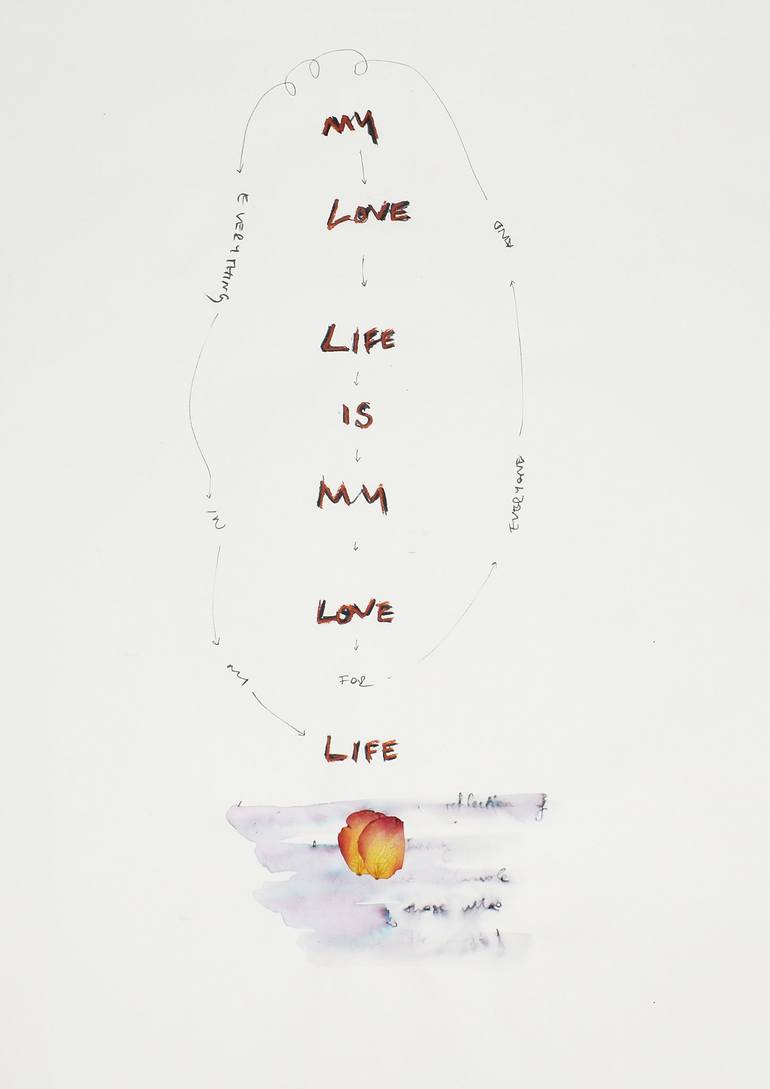 MY
LOVE
LIFE
IS
MY
LOVE
FOR
EVERYONE
AND
EVERYTHING
IN
MY
LIFE
reflection of
those who